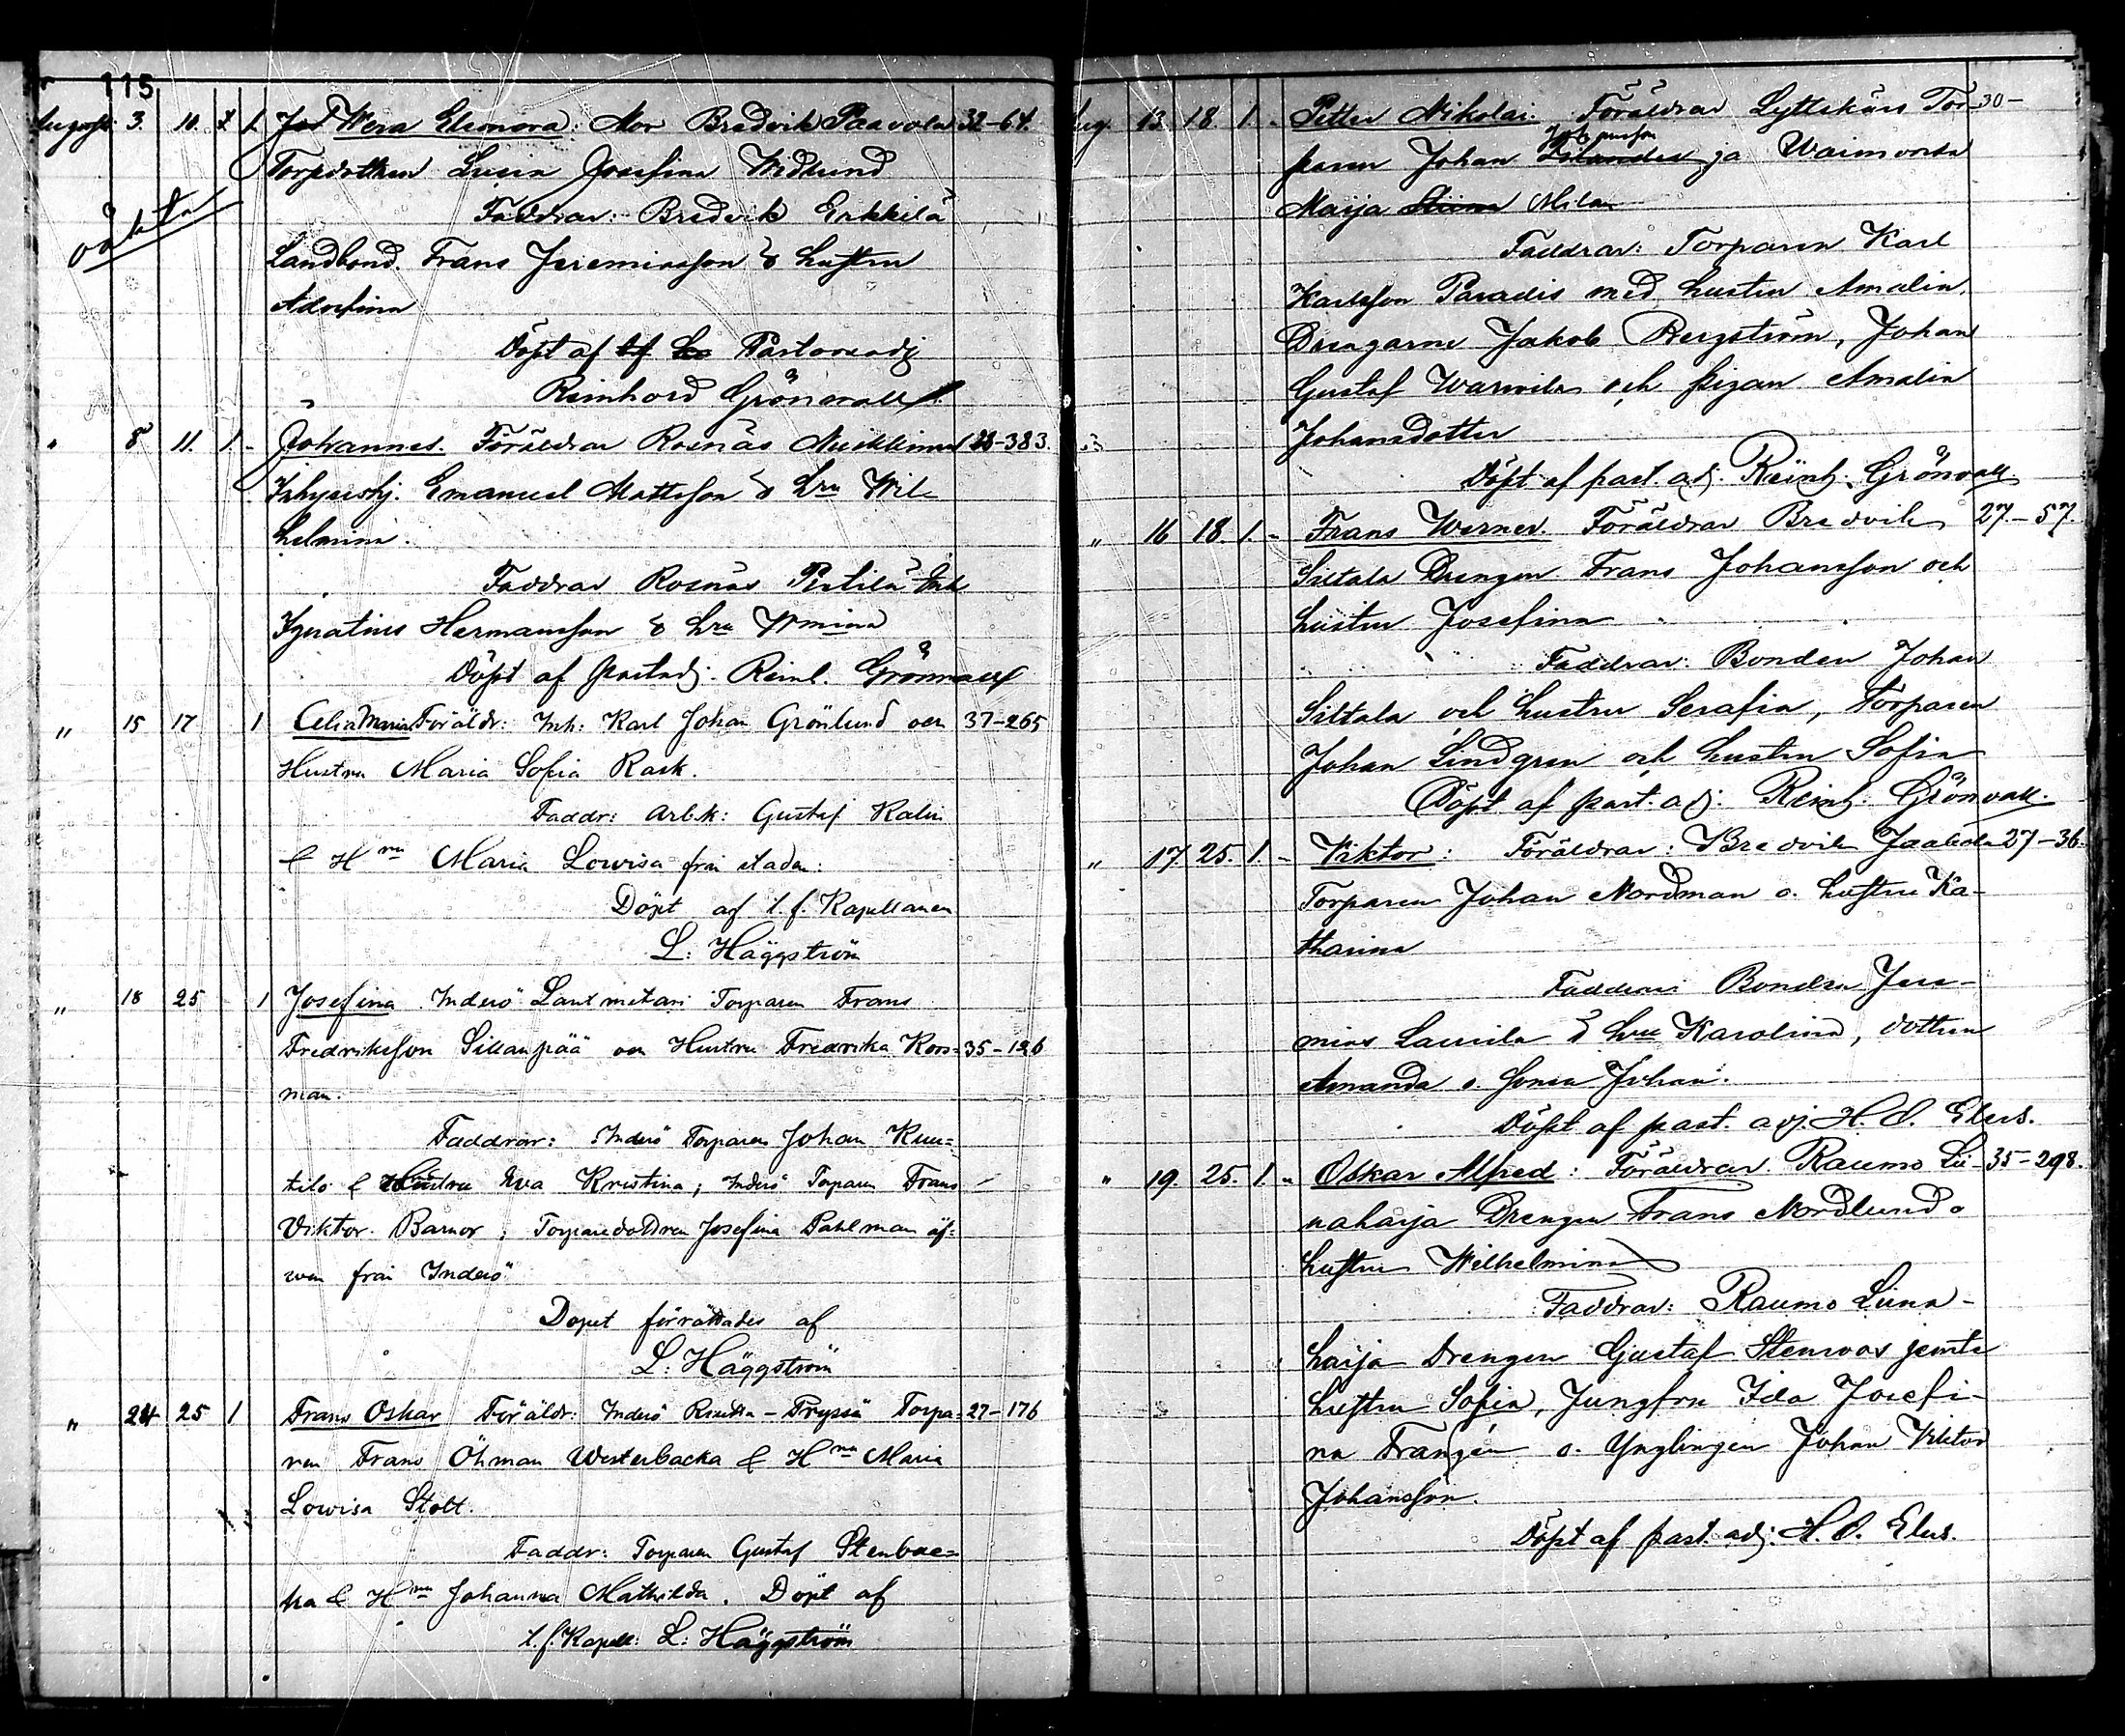 115
August. 3. 10. 1. Wera Eleonora: Mor Bredvik Paavola 32-64.
Torpdottren Josefina Widlund
oäkta
Faddrar: Bredvik Erkkilä
Landbond. Frans Jeremiasson & hustru
Adolfina
Döpt af Pastorsadj
Reinhord Grönvall.
" 8 11. 1. - Johannes. Föräldrar Rosnäs 28-383.
Emanuel Mattsson & Hru Wil-
helmina.
Faddrar Rosnäs Pertilä Inh
Ignatius Hermansson & hru Wmina
Döpt af Pastadj. Reinh. Grönvall
" 15 17 1 Celia Maria Föräldr: Inh: Karl Johan Grönlund och 37-265
Hustru Maria Sofia Rask.
Faddr: Arb.k: Gustaf Kalin
& Hru Maria Lowisa från staden:
Döpt af t.f. Kapellanen
L: Häggström
" 18 25 1 Josefina Inderö Lantmetari Torparen Frans
Fredriksson Sillanpää och Hustru Fredrika Kors= 35-126
man.
Faddrar: Inderö Torparen Johan Kuu=
tilo & Hustru Eva Kristina; Inderö Torparen Frans
Viktor Barnor; Torparedottren Josefina Pahlman äf=
ven från Inderö
Dopet förrättades af
L: Häggström
" 24 25 1 Frans Oskar Föräldr: Inderö - Pryssä Torpa= 27-176
ren Frans Öhman Westerbacka & Hru Maria
Lowisa Stolt.
Faddr: Torparen Gustaf Stenbac=
ka & Hru Johanna Mathilda. Döpt af
t.f. Kapell: L: Häggström
Aug. 13. 18. 1. - Petter Nikolai. Föräldrar Lyttskärs Tor- 30-
Johansson
paren Johan ja Waimonsa
Maija Mila
Faddrar: Torparen Karl
Karlsson Paradis med hustru Amalia,
Drengarne Jakob Bergström, Johan
Gustaf Warmila och pigan Amalia
Johansdotter
Döpt af past. adj. Reinh. Grönvall
" 16 18. 1. - Frans Werner. Föräldrar Bredvik 27.-57.
Siltala Drengen Frans Johansson och
hustru Josefina
Faddrar: Bonden Johan
Siltala och hustru Serafia, Torparen
Johan Lindgren och hustru Sofia
Döpt af past. adj. Reinh. Grönvall.
" 17. 25. 1. - Viktor: Föräldrar: Bredvik Jaakola 27-36.
Torparen Johan Nordman o. hustru Ka-
tharina
Faddrar Bonden Jere-
mias Laurila & hru Karolina, dottren
Amanda o. sonen Johan.
Döpt af past. adj. H. O. Elers.
" 19. 25. 1. " Oskar Alfred: Föräldrar Raumo Lii- 35-298.
naharja Drengen Frans Nordlund o
hustru Wilhelmina
Faddrar: Raumo Liina-
harja Drengen Gustaf Stenroos jemte
hustru Sofia, Jungfru Ida Josefi-
na Franzén o. Ynglingen Johan Viktor
Johansson.
Döpt af past. adj. H. O. Elers.